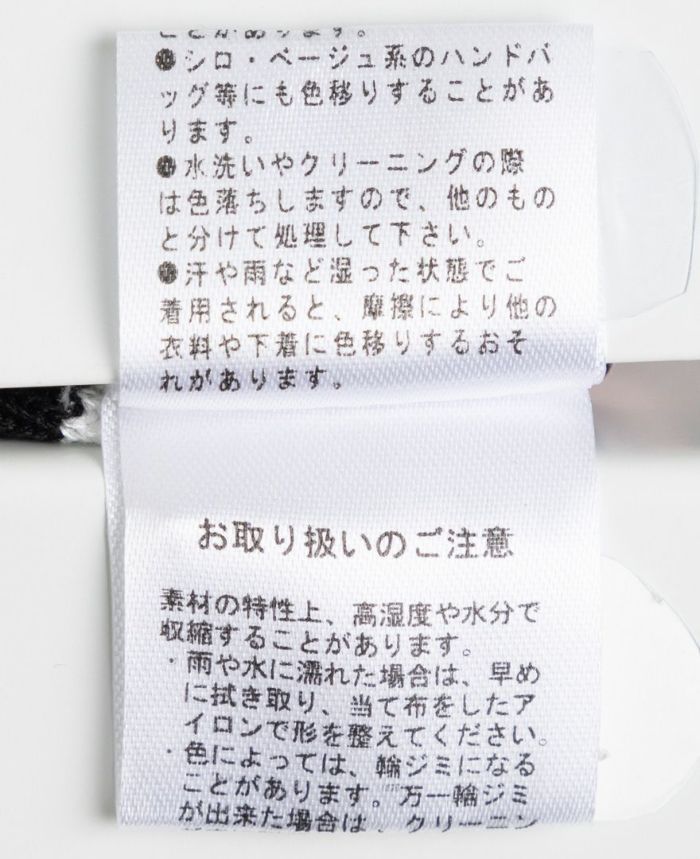 ことがあります。
●シロ・ベージュ系のハンドバ
ッグ等にも色移りすることがあ
ります。
●水洗いやクリーニングの際
は色落ちしますので、他のもの
と分けて処理して下さい。
●汗や雨など湿った状態でご
着用されると、摩擦により他の
衣料や下着に色移りするおそ
れがあります。
お取り扱いのご注意
素材の特性上、高湿度や水分で
収縮することがあります。
・雨や水に濡れた場合は、早め
に拭き取り、当て布をしたア
イロンで形を整えてください。
・色によっては、輪ジミになる
ことがあります。万一輪ジミ
が出来た場合は、クリーニン